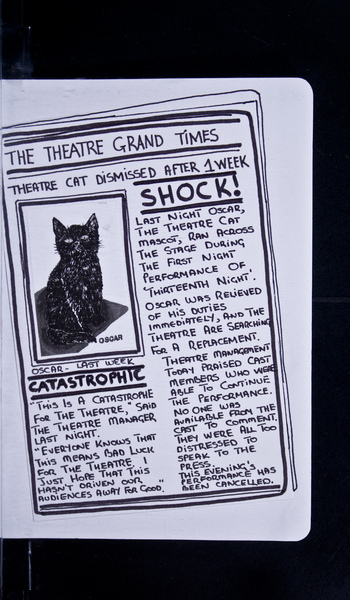 THE THEATRE GRAND TIMES
THEATRE CAT DISMISSED AFTER 1 WEEK
SHOCK!
LAST NIGHT OSCAR,
THE THEATRE CAT
MASCOT, RAN ACROSS
THE STAGE DURING
THE FIRST NIGHT
PERFORMANCE OF
'THIRTEENTH NIGHT'.
OSCAR WAS RELIEVED
OF HIS DUTIES
IMMEDIATELY, AND THE
THEATRE ARE SEARCHING
FOR A REPLACEMENT.
THEATRE MANAGEMENT
TODAY PRAISED CAST
MEMBERS WHO WERE
ABLE TO CONTINUE
THE PERFORMANCE.
NO ONE WAS
AVAILABLE FROM THE
CAST TO COMMENT.
THEY WERE ALL TOO
DISTRESSED TO
SPEAK TO THE
PRESS.
THIS EVENING'S
PERFORMANCE HAS
BEEN CANCELLED.
OSCAR
OSCAR - LAST WEEK
CATASTROPHIC
"THIS IS A CATASTROPHE
FOR THE THEATRE," SAID
THE THEATRE MANAGER
LAST NIGHT.
"EVERYONE KNOWS THAT
THIS MEANS BAD LUCK
FOR THE THEATRE. I
JUST HOPE THAT THIS
HASN'T DRIVEN OUR
AUDIENCES AWAY FOR GOOD."